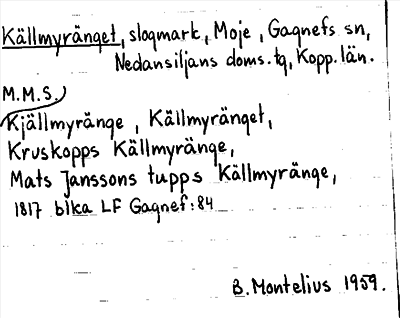 Källmyränget, slogmark, Moje, Gagnefs sn,
Nedansiljans doms. tg, Kopp. län.
M.M.S.
Kjällmyränge, Källmyränget,
Kruskopps Källmyränge,
Mats Janssons tupps Källmyränge,
1817 bika LF Gagnef: 84
B. Montelius 1959.